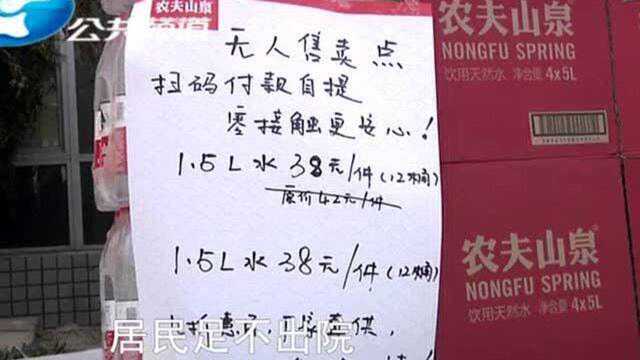 公共频道
农夫山泉
无人售卖点
扫码付款自提
零接触更安心!
1.5L水38元/件(12桶)
原价42元/件
1.5L水38元/件(12桶)
居民足不出院
农夫山泉
NONGFU SPRING
饮用天然水 净含量 4x5L
农夫山泉
NONGFU SPRING
饮用天然水 净含量 4x5L